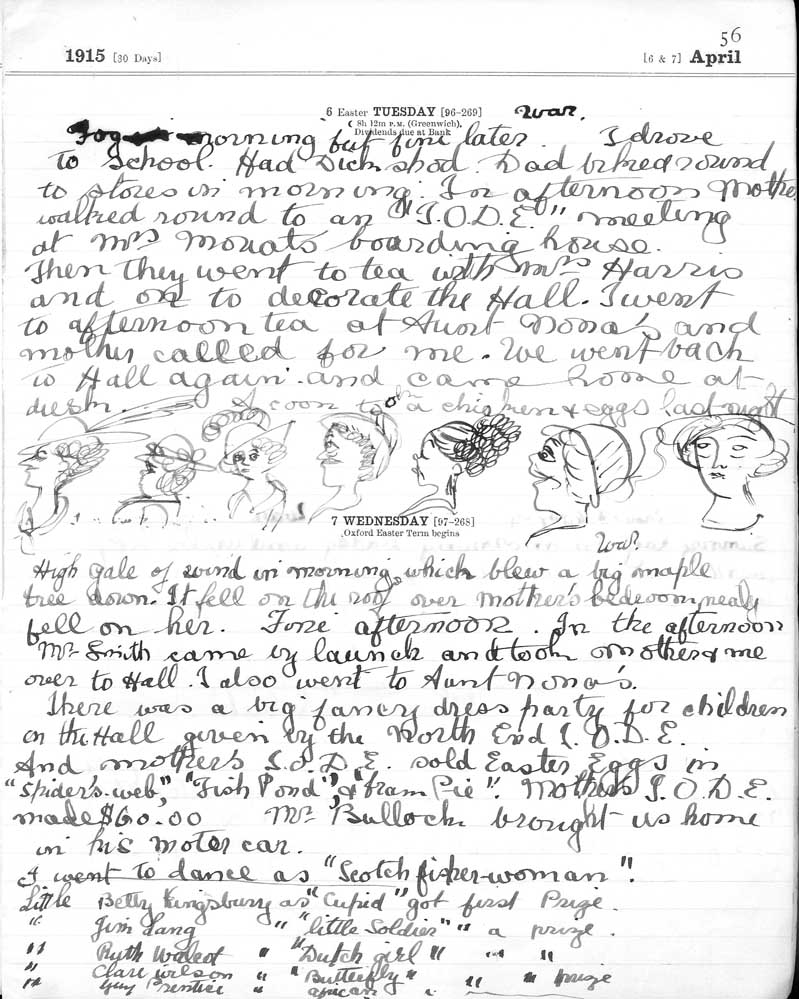 56
1915 [30 Days] [6 & 7] April
6 Easter TUESDAY [96-269] War.
( 8h 12m P.M. (Greenwich).
Dividends due at Bank
Fog morning but fine later. I drove
to School. Had Dick shod. Dad biked round
to stores in morning. In afternoon Mother
walked round to an "I.O.D.E." meeting
at Mrs Mouats boarding house.
Then they went to tea with Mrs Harris
and on to decorate the Hall. I went
to afternoon tea at Aunt Nona's and
mother called for me. We went back
to Hall again and came home at
dusk. A coon took a chicken & eggs last night
7 WEDNESDAY [97-268]
Oxford Easter Term begins
War.
High gale of wind in morning, which blew a big maple
tree down. It fell on the roof over mother's bedroom, nealy
fell on her. Fine afternoon. In the afternoon
Mr Smith came by launch and took mother & me
over to Hall. I also went to Aunt Nona's.
There was a big fancy dress party for children
in the Hall given by the North End I.O.D.E.
And mother's I.O.D.E. sold Easter Eggs in
"Spider's-web," "Fish Pond", & "bram Pie". Mother's I.O.D.E.
made $60.00 Mr Bullock brought us home
in his moter car.
I went to dance as "Scotch fisher-woman".
Little Betty Kingsbury as "Cupid" got first Prize.
" Jim Lang " "little Soldier" " a prize.
" Ruth Walcot " "Dutch girl" " " "
" Clare Wilson " "Butterfly" " " prize
" Guy Prentice " african "